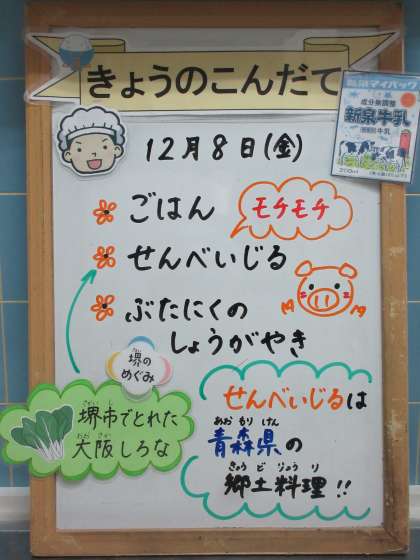 きょうのこんだて
新泉マイパック
成分無調整
新泉牛乳
200ml
12月8日(金)
ごはん
モチモチ
せんべいじる
ぶたにくの
しょうがやき
堺の
めぐみ
さかい し
堺市でとれた
おおさか
大阪しろな
せんべいじるは
あおもりけん
青森県の
きょうどりょうり
郷土料理!!